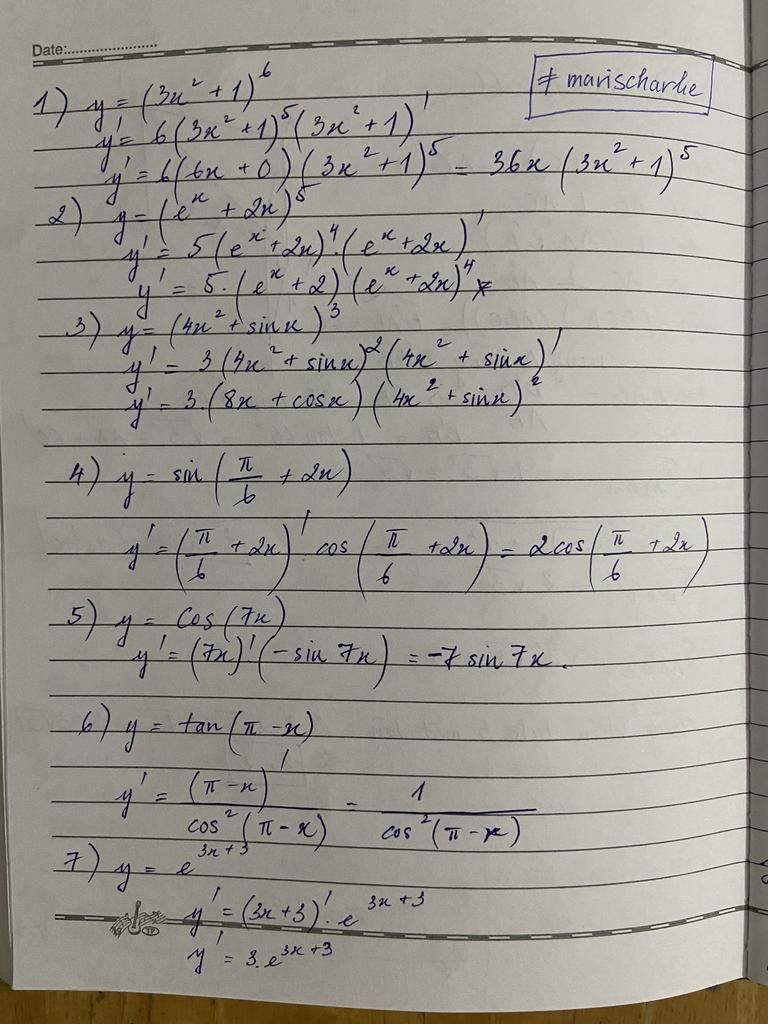 Date:........................
≠ marischarlie
1) y = (3x² + 1)⁶
y' = 6(3x² + 1)⁵ (3x² + 1)'
y' = 6(6x + 0) (3x² + 1)⁵ = 36x (3x² + 1)⁵
2) y = (eˣ + 2x)⁵
y' = 5(eˣ + 2x)⁴. (eˣ + 2x)'
y' = 5. (eˣ + 2) (eˣ + 2x)⁴
3) y = (4x² + sinx)³
y' = 3 (4x² + sinx)² (4x² + sinx)'
y' = 3. (8x + cosx) (4x² + sinx)²
4) y = sin (π/6 + 2x)
y' = (π/6 + 2x)' cos (π/6 + 2x) = 2cos (π/6 + 2x)
5) y = Cos (7x)
y' = (7x)'. (-sin 7x) = -7 sin 7x.
6) y = tan (π - x)
y' = (π - x)' / cos² (π - x) = 1 / cos² (π - x)
7) y = e³ˣ⁺³
y' = (3x + 3)'. e³ˣ⁺³
y' = 3. e³ˣ⁺³